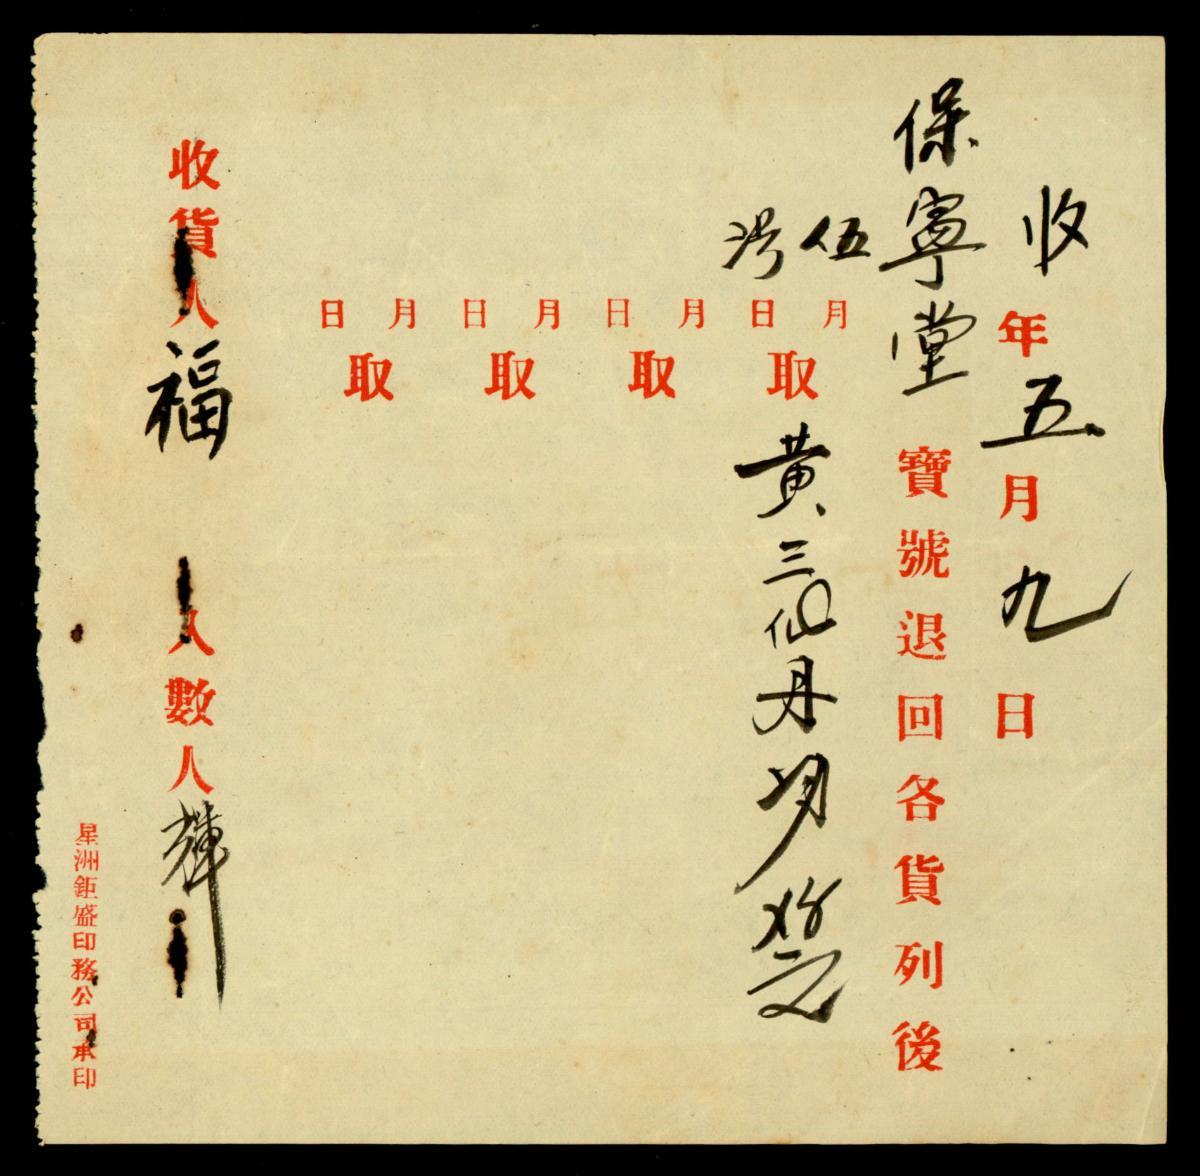 收年五月九日
保寧堂寶號退回各貨列後
月日月日月日月日
伍
取取取取
黃三仙丹
收貨人福
入數人輝
星洲鉅盛印務公司承印